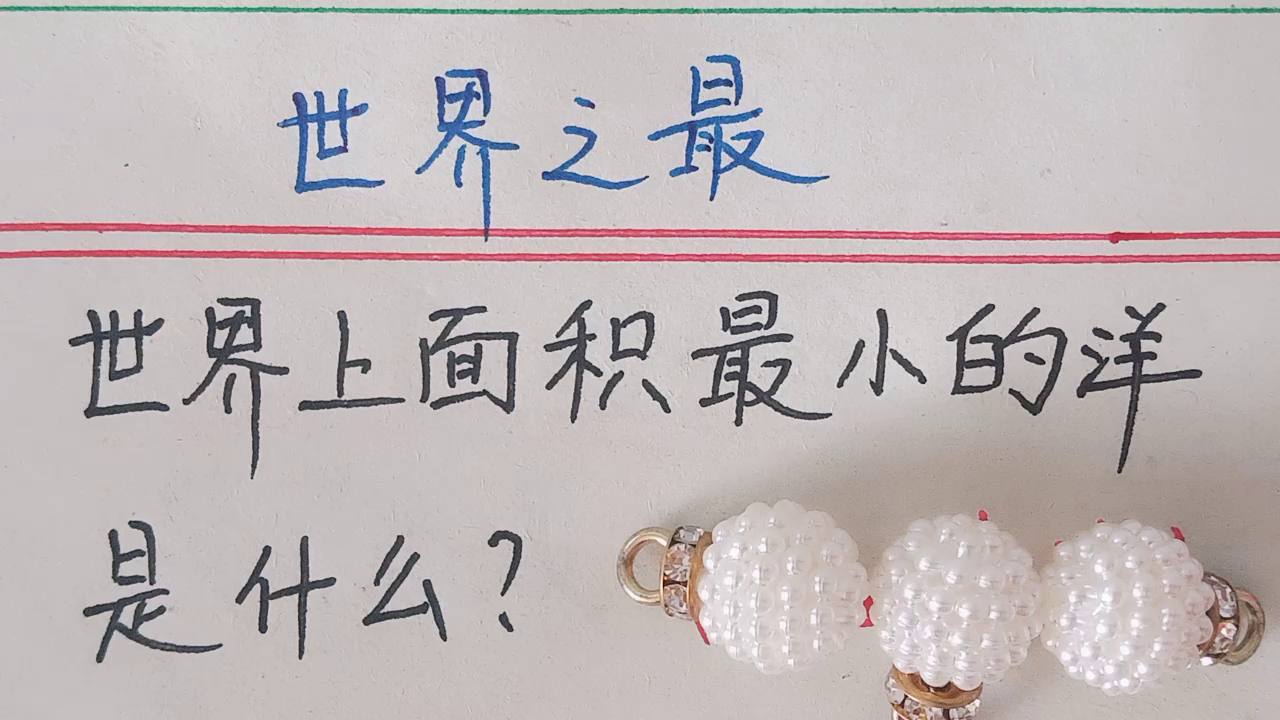 世界之最
世界上面积最小的洋
是什么?